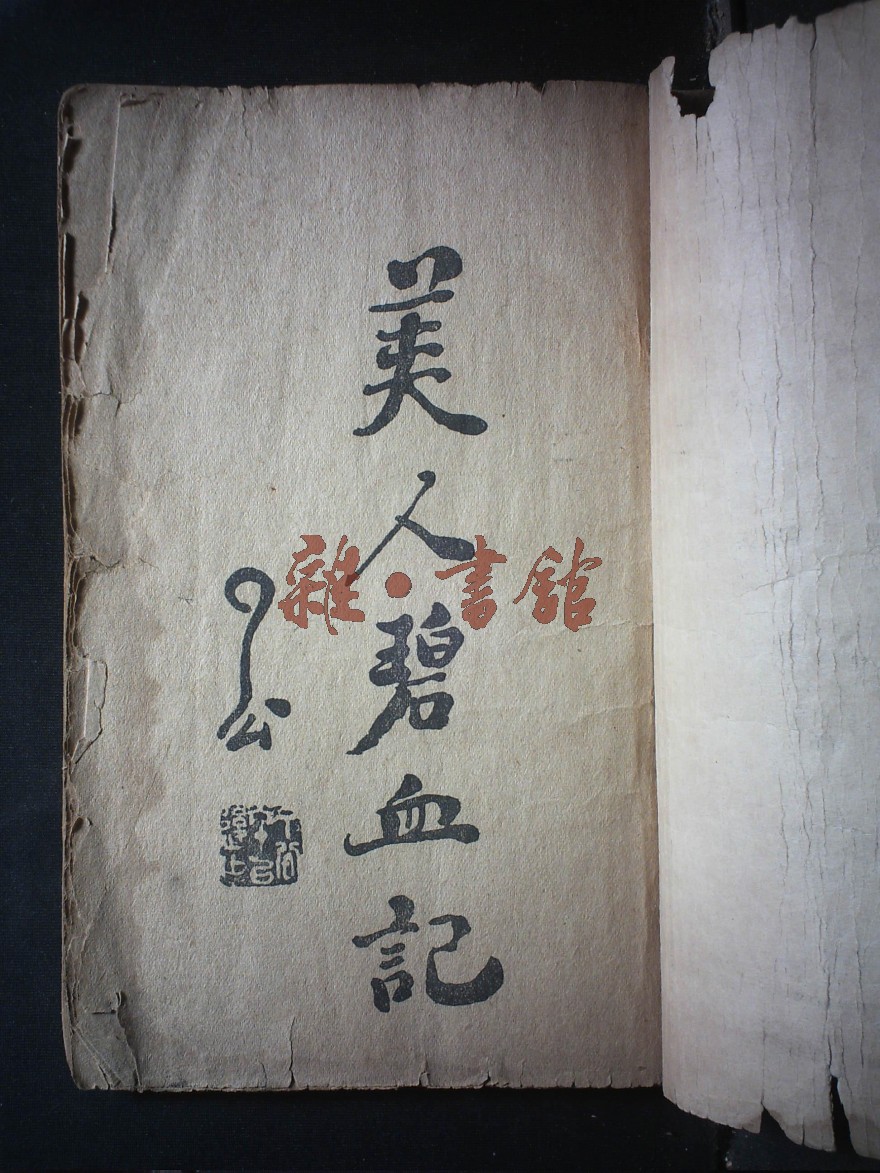 美人碧血記
公
雜·書館